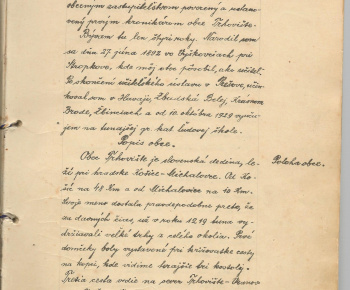 obecným zastupiteľstvom poverený a ustano-
vený prvým kronikárom obce Trhovište.
Bývam tu len Narodil som
sa dňa 27. júna 1892 vo Vyškovciach pri
Stropkove, kde môj otec pôsobil, ako učiteľ.
Po skončení učiteľského ústavu v Prešove, učin-
koval som v Hlinnej, Zbudskej Belej, Krásnom
Brode, Zbinciach a od 10. októbra 1929 vyuču-
jem na tunajšej gr. kat. ľudovej škole.
Popis obce.
Obec Trhovište je slovenská dedina, le-
ží pri hradske Košice-Michalovce. Od Ko-
šíc na 48 Km a od Michaloviec na 10 Km.
Svoje meno dostala pravdepodobne preto, že
za dávnych čias, už v roku 1219 tuná vy-
držiavali veľké trhy z celého okolia. Prvé
domčeky boly vystavené pri križovatke cesty
na kopci, kde vidíme terajšie tri kostoly.
Tretia cesta vedie na sever Trhovište-Vranov
Poloha obec.